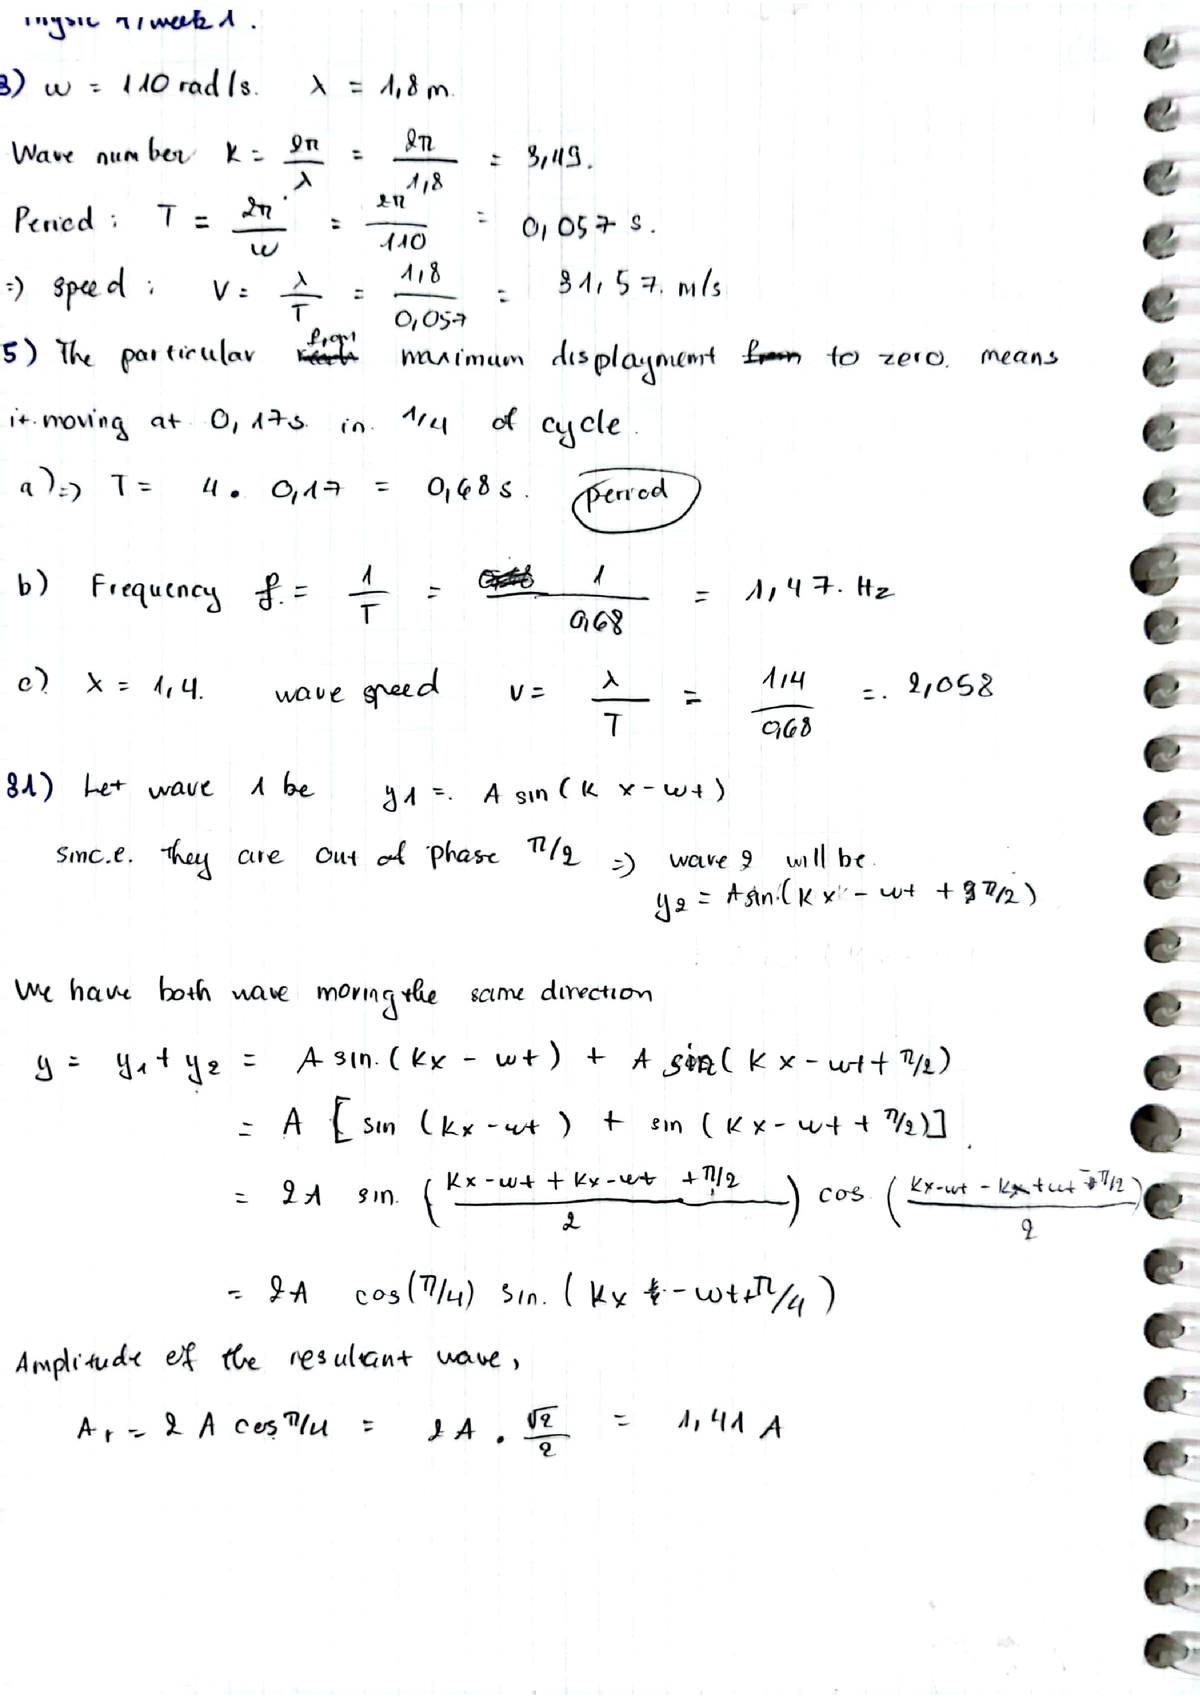 week 1.
3) w = 110 rad/s. λ = 1,8 m.
Wave number K = 2π/λ = 2π/1,8 = 3,49.
Period : T = 2π/w = 2π/110 = 0,057 s.
=) speed : V = λ/T = 1,8/0,057 = 31,57. m/s
5) The particular from maximum displayment to zero. means
it. moving at 0,17s. in. 1/4 of cycle.
a) =) T = 4. 0,17 = 0,68 s. period
b) Frequency f. = 1/T = 1/0,68 = 1,47. Hz
c) λ = 1,4. wave speed v = λ/T = 1,4/0,68 =. 2,058
31) Let wave 1 be y1 =. A sin (K x - wt)
sinc.e. they are out of phase π/2 =) wave 2 will be.
y2 = A sin.(K x - wt + π/2)
We have both wave moving the same direction
y = y1 + y2 = A sin. (Kx - wt) + A sin( K x - wt + π/2)
= A [ sin (kx - wt ) + sin ( K x - wt + π/2)].
= 2A sin. ( Kx - wt + Kx - wt + π/2 / 2 ) cos. ( Kx - wt - Kx + wt - π/2 / 2 )
= 2A cos(π/4) sin. ( Kx - wt + π/4 )
Amplitude of the resultant wave,
Ar = 2 A cos π/4 = 2 A . √2/2 = 1,41 A